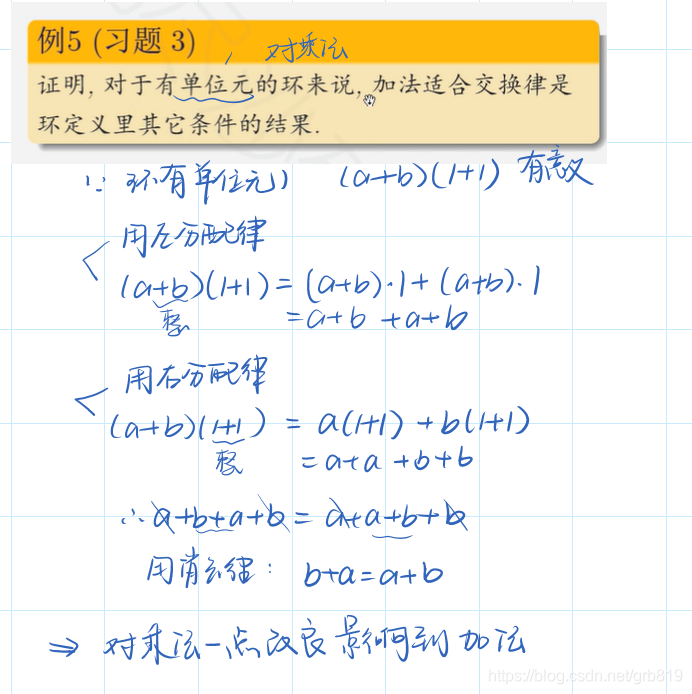 例5 (习题 3)
, 对乘法
证明, 对于有单位元的环来说, 加法适合交换律是
环定义里其它条件的结果.
∵ 环有单位元1 (a+b)(1+1) 有意义
用左分配律
(a+b)(1+1) = (a+b)·1 + (a+b)·1
整
= a+b +a+b
用右分配律
(a+b)(1+1) = a(1+1) + b(1+1)
整
= a+a +b+b
∴ a+b+a+b = a+a+b+b
用消去律: b+a=a+b
⇒ 对乘法一点改良影响到加法
https://blog.csdn.net/grb819